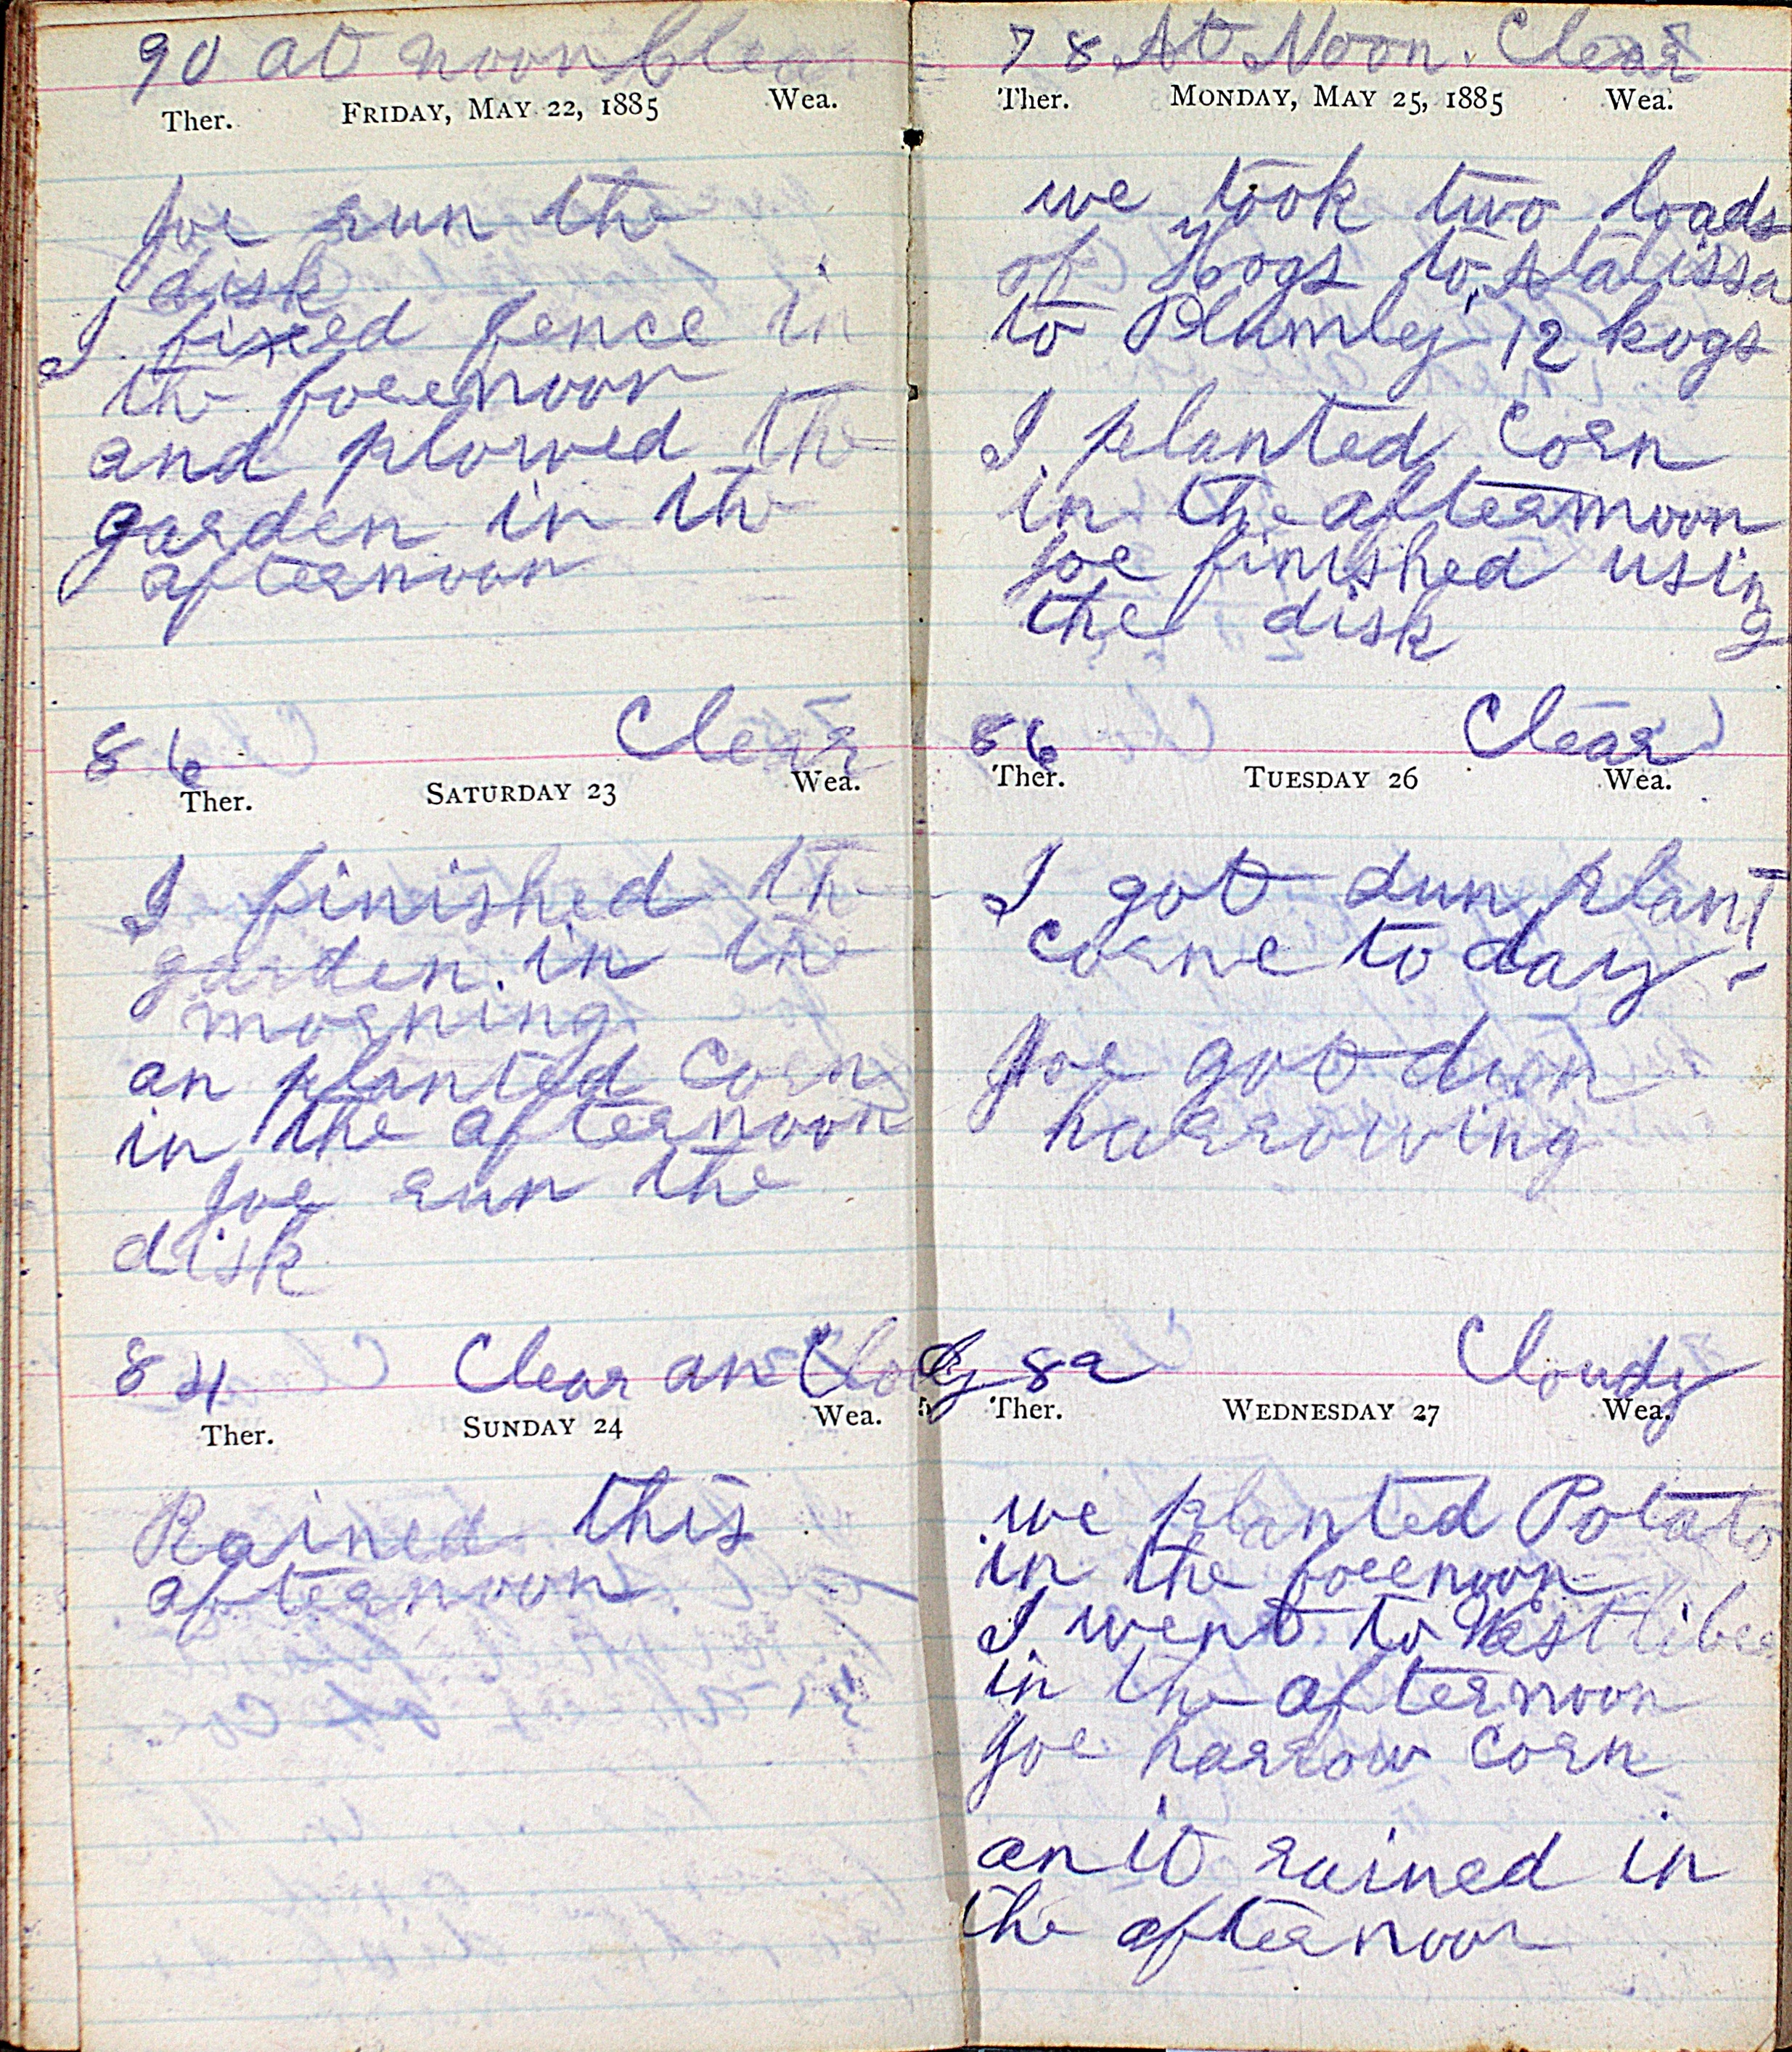 90 at noon Clear
Ther. FRIDAY, MAY 22, 1885 Wea.
Joe run the
disk
I fixed fence in
the forenoon
and plowed the
garden in the
afternoon
86 Clear
Ther. SATURDAY 23 Wea.
I finished the
garden in the
morning
an planted Corn
in the afternoon
Joe run the
disk
84 Clear an Clody
Ther. SUNDAY 24 Wea.
Rained this
afternoon
78 At Noon. Clear
Ther. MONDAY, MAY 25, 1885 Wea.
we took two loads
of Hogs to Atalissa
to Plumley 12 hogs
I planted Corn
in the afternoon
Joe finished using
the disk
86 Clear
Ther. TUESDAY 26 Wea.
I got dun plant
corne to day
Joe got dun
harrowing
82 Cloudy
Ther. WEDNESDAY 27 Wea.
we planted Potato
in the forenoon
I went to West libe
in the afternoon
Joe harrow Corn
an it rained in
the afternoon